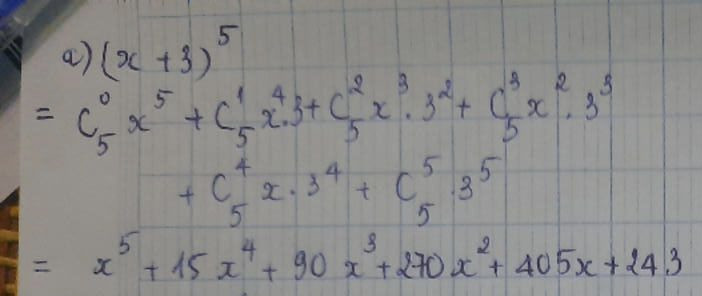 a) (x + 3)⁵
= C₅⁰ x⁵ + C₅¹ x⁴.3 + C₅² x³.3² + C₅³ x².3³
+ C₅⁴ x.3⁴ + C₅⁵.3⁵
= x⁵ + 15x⁴ + 90x³ + 270x² + 405x + 243